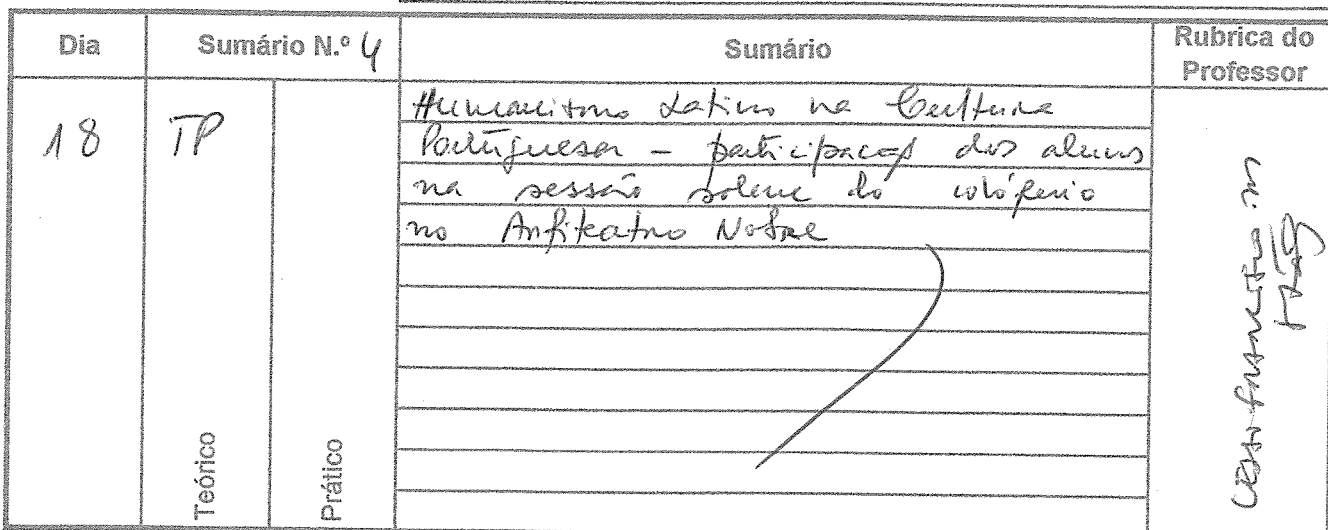 Dia
Sumário N.º 4
Sumário
Rubrica do
Professor
18
TP
Humanismo Latino na Cultura
Portuguesa – participação dos alunos
na sessão solene do colóquio
no Anfiteatro Nobre
Teórico
Prático